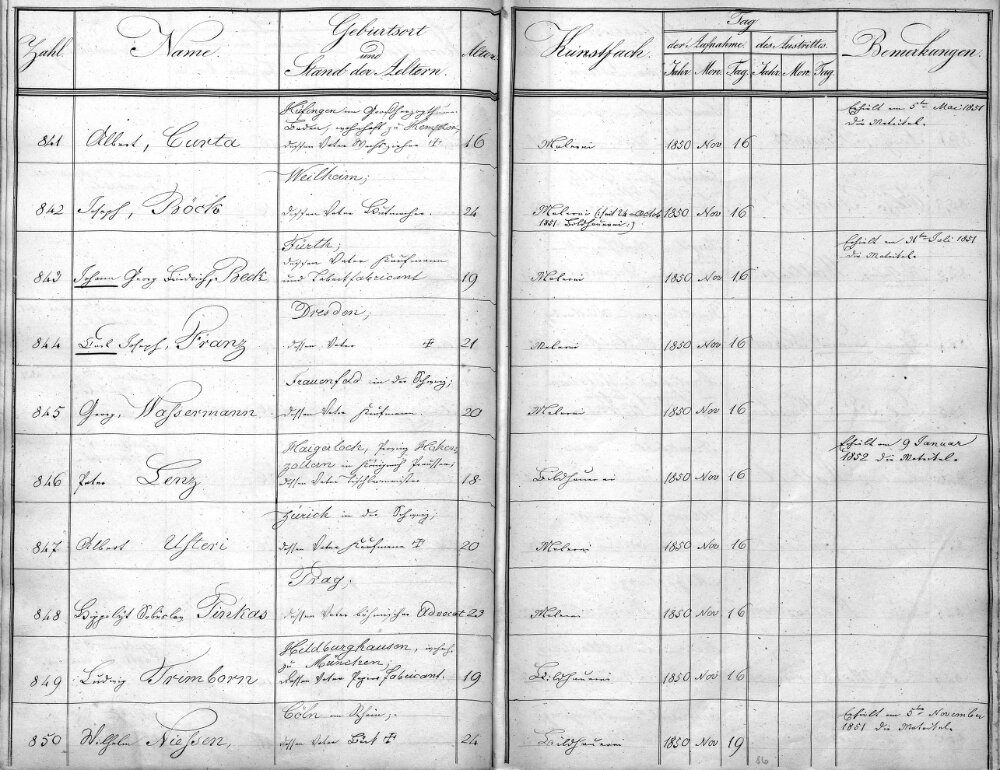 Zahl Name. Geburtsort und Stand der Aeltern. Alter. Kunstfach. Tag der Aufnahme. des Austrittes Bemerkungen.
Jahr Mon. Tag. Jahr. Mon. Tag
Hüfingen im Großherzogthum
Baden, wohnhaft zu Kempten,
841 Albert, Curta dessen Vater Wachszieher ✝ 16 Malerei 1850 Nov 16
Erhielt am 5ten Mai 1851
die Matrikel.
Weilheim;
842 Joseph, Böck dessen Vater Hutmacher. 24 Malerei (: seit 24 Octob 1850 Nov 16
1851 Bildhauerei :)
Fürth;
dessen Vater Kaufmann
843 Johann Georg Friedrich, Beck und Tabakfabricant 19 Malerei 1850 Nov 16
Erhielt am 31ten Juli 1851
die Matrikel.
Dresden;
844 Carl Joseph, Franz dessen Vater ✝ 21 Malerei 1850 Nov 16
Frauenfeld in der Schweiz;
845 Georg, Wassermann dessen Vater Kaufmann. 20 Malerei 1850 Nov 16
Haigerloch, Provinz Hohen
zollern im Königreich Preussen,
846 Peter Lenz dessen Vater Tischlermeister 18 Bildhauerei 1850 Nov 16
Erhielt am 9 Januar
1852 die Matrikel.
Zürich in der Schweiz;
847 Albert Usteri dessen Vater Kaufmann ✝ 20 Malerei 1850 Nov 16
Prag;
848 Hippolyt Sobieslav Pinkas dessen Vater böhmischer Advocat 23 Malerei 1850 Nov 16
Hildburghausen, wohnh.
zu München;
849 Ludwig Trimborn dessen Vater Papier Fabricant. 19 Bildhauerei 1850 Nov 16
Cöln am Rhein;
850 Wilhelm Niessen, dessen Vater ✝ 24 Bildhauerei 1850 Nov 19
Erhielt am 5ten November
1851 die Matrikel.
86